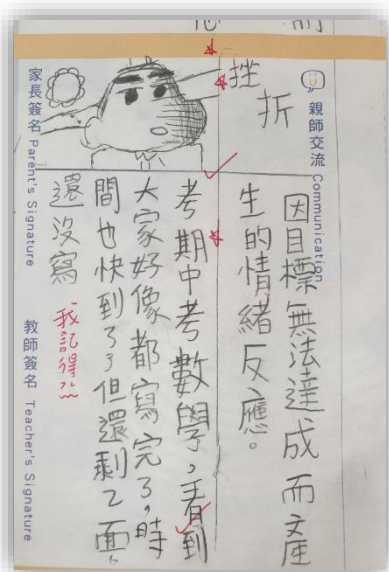 挫折
親師交流 Communication
因目標無法達成而產
生的情緒反應。
考期中考數學，看到
大家好像都寫完了，時
間也快到了但還剩2面
還沒寫
我記得
家長簽名 Parent's Signature
教師簽名 Teacher's Signature